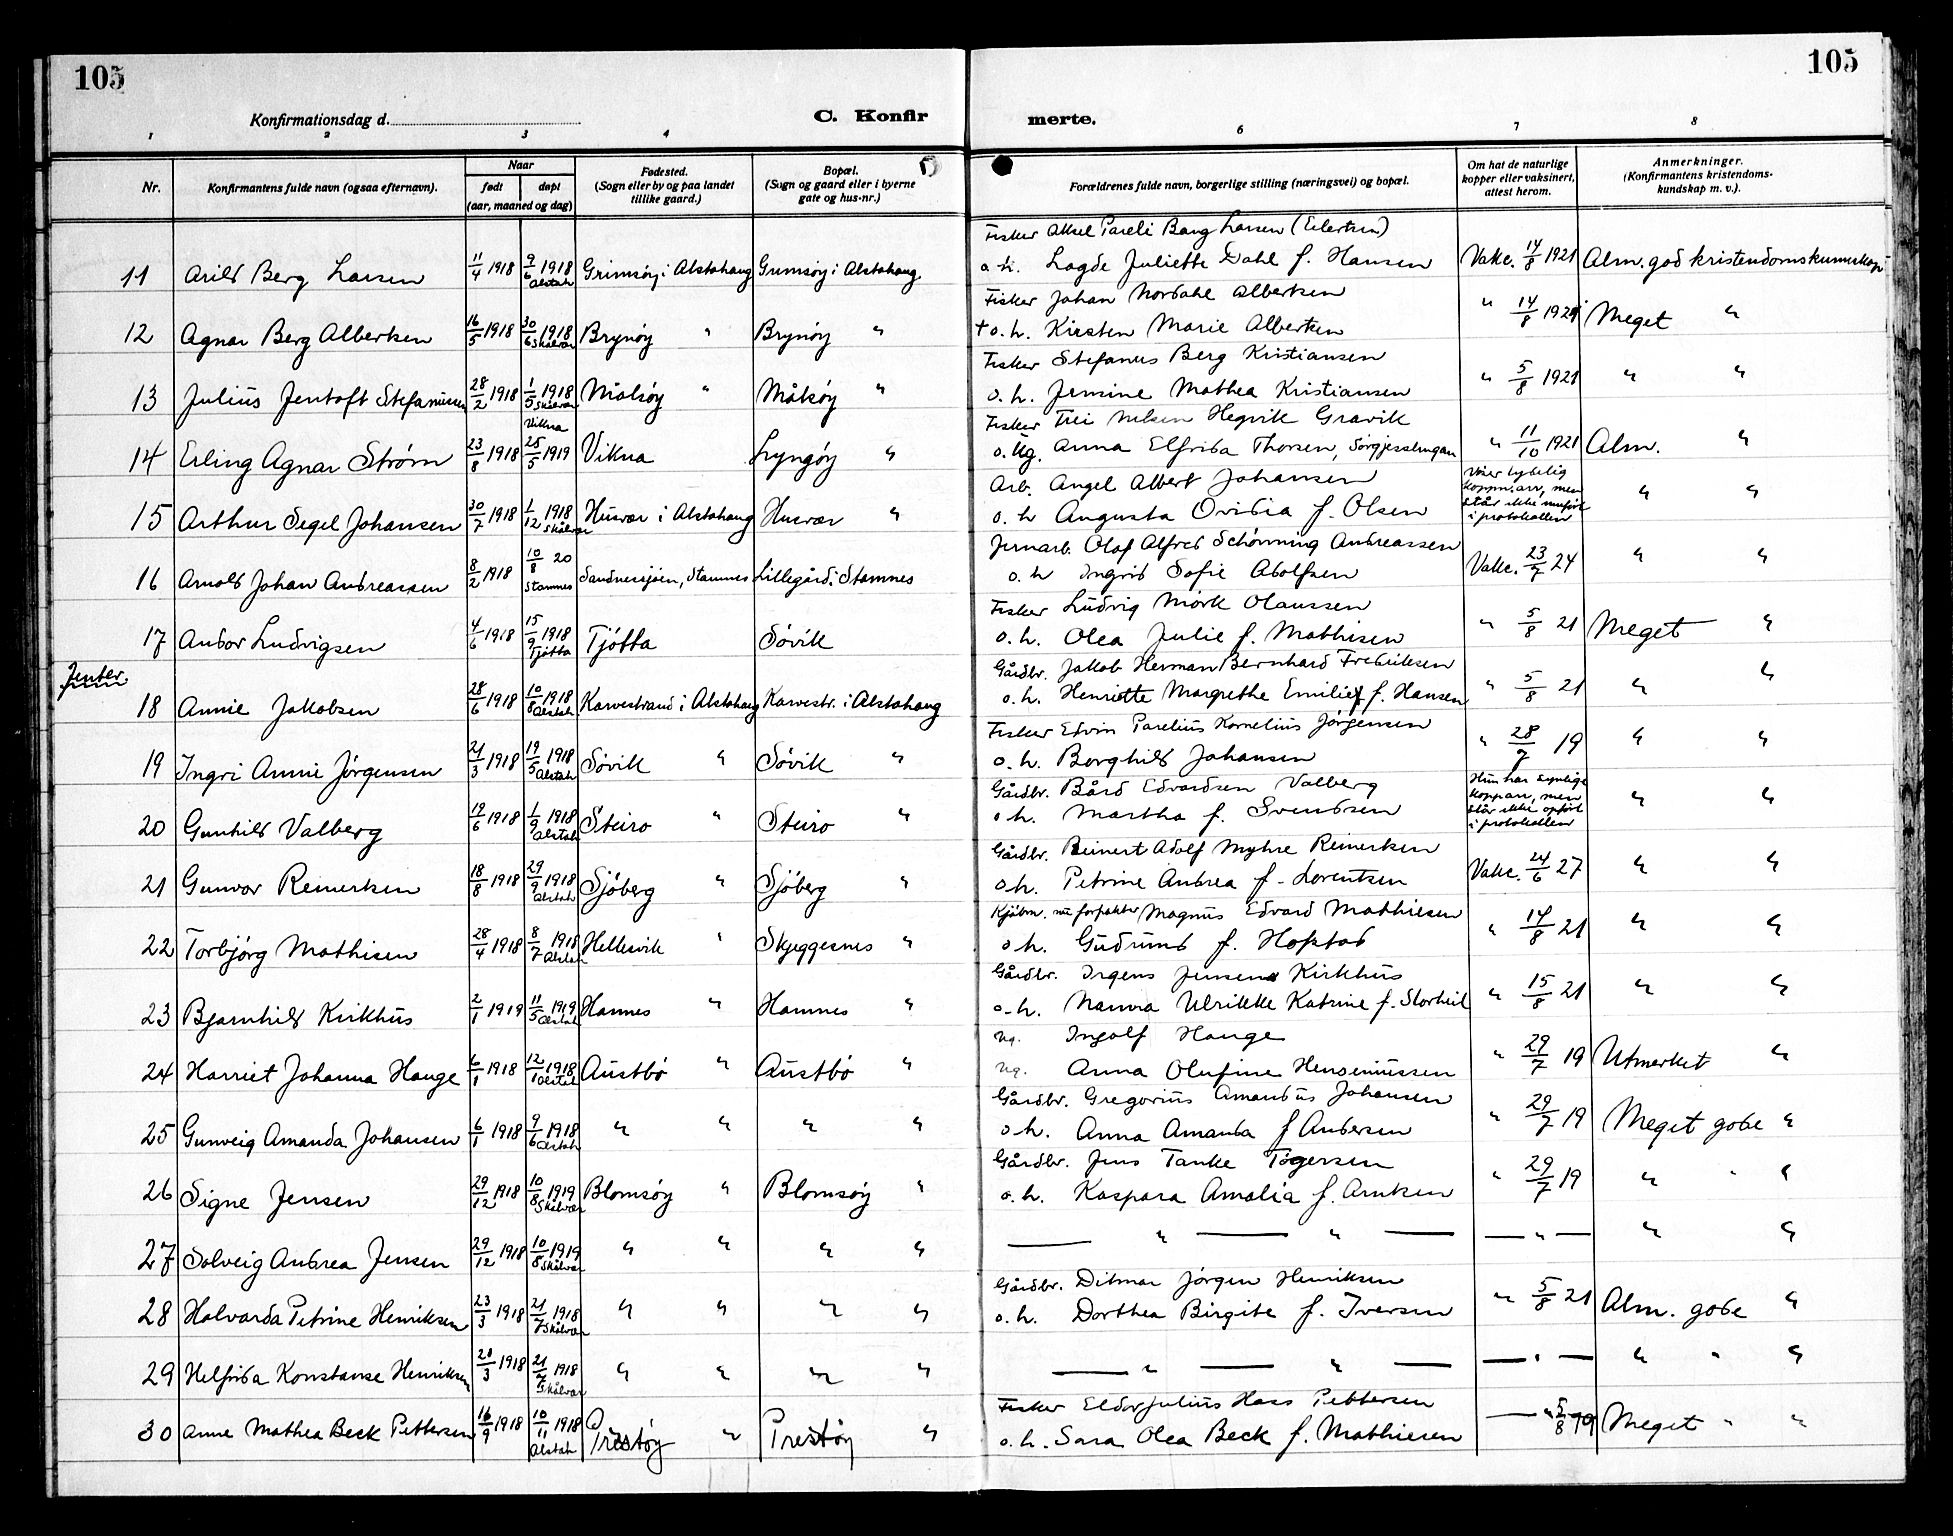 105
105
Konfirmationsdag d.
C. Konfir
merte.
1 2 3 4 5 6 7 8
Nr.
Konfirmantens fulde navn (ogsaa efternavn).
Naar
født
døpt
(aar, maaned og dag)
Fødested.
(Sogn eller by og paa landet
tillike gaard.)
Bopæl.
(Sogn og gaard eller i byerne
gate og hus-nr.)
Forældrenes fulde navn, borgerlige stilling (næringsvei) og bopæl.
Om hat de naturlige
kopper eller vaksinert,
attest herom.
Anmerkninger.
(Konfirmantens kristendoms-
kundskap m. v.).
Fisker Aksel Pareli Bang Larsen (Eilertsen)
11 Arild Berg Larsen 11/4 1918 9/6 1918 Alstah Grimsøy i Alstahaug Grimsøy i Alstahaug o. h. Lagde Juliette Dahl f. Hansen Vakc. 14/8 1921 Alm. god kristendomskunnskap
Fisker Johan Nordahl Albertsen
12 Agnar Berg Albertsen 16/5 1918 30/6 1918 Skålvær Brynøy " Brynøy " + o. h. Kirsten Marie Albertsen " 14/8 1921 Meget "
Fisker Stefanus Berg Kristiansen
13 Julius Jentoft Stefanussen 28/2 1918 1/5 1918 Skålvær Måsøy " Måsøy " o. h. Jensine Mathea Kristiansen " 5/8 1921 " "
Fisker Trei Nilsen Hegvik Gravik
14 Erling Agnar Strøm 23/8 1918 Vikna 25/5 1919 Vikna Lyngøy " o. Ug. Anna Elfrida Thorsen, " 11/10 1921 Alm. "
Arb. Angel Albert Johansen
15 Arthur Segel Johansen 30/7 1918 1/12 1918 Skålvær Husvær i Alstahaug Husvær " o. h Augusta Ovidia f. Olsen Viser tydelig koppn.arr, men står ikke innført i protokollen " "
Jernarb. Olaf Alfred Schønning Andreassen
16 Arnold Johan Andreassen 8/2 1918 10/8 20 Stamnes Sandnessjøen, Stamnes Lillegård i Stamnes o. h Ingrid Sofie Adolfsen Vakc. 23/7 24 " "
Fisker Ludvig Mörk Olaussen
17 Andor Ludvigsen 4/6 1918 15/9 1918 Tjøtta Tjøtta Søvik o. h. Olea Julie f. Mathisen " 5/8 21 Meget "
Jenter
Gårdbr. Jakob Herman Bernhard Fredriksen
18 Annie Jakobsen 28/6 1918 10/8 1918 Alstah Karvestrand i Alstahaug Karvestr. i Alstahaug o. h. Henriette Margrethe Emilie f. Hansen " 5/8 21 " "
Fisker Edvin Parelius Kornelius Jørgensen
19 Ingri Annie Jørgensen 21/3 1918 19/5 1918 Alstah Søvik " Søvik " o. h. Borghild Johansen " 28/7 19 " "
Gårdbr. Bård Edvardsen Valberg
20 Gunhild Valberg 19/6 1918 1/9 1918 Alstah Steiro " Steiro " o h. Martha f. Svendsen Hun har synlige kopparr, men står ikke opført i protokollen " "
Gårdbr. Reinert Adolf Myhre Reinertsen
21 Gunvor Reinertsen 18/8 1918 29/9 1918 Alstah Sjøberg " Sjøberg " o h. Petrine Andrea f. Lorentsen Vakc. 24/6 27 " "
Kjøbm. nu forpakter Magnus Edvard Mathiesen
22 Torbjørg Mathisen 28/4 1918 8/7 1918 Alstah Hellesvik " Skjeggesnes " o h. Gudrund f. Hofstad " 14/8 21 " "
Gårdbr. Irgens Jensen Kirkhus
23 Bjarnhild Kirkhus 2/1 1919 11/5 1919 Alstah Hamnes " Hamnes " o. h. Nanna Ulrikke Katrine f. Storheil " 15/8 21 " "
Ug. Ingolf Hauge
24 Harriet Johanna Hauge 6/1 1918 12/1 1918 Alstah Austbø " Austbø " Ug. Anna Olufine Henseniussen " 29/7 19 Utmerket "
Gårdbr. Gregorius Amandus Johansen
25 Gunveig Amanda Johansen 6/1 1918 9/6 1918 Alstah " " " " o h. Anna Amanda f Andersen " 29/7 19 Meget gode "
Gårdbr. Jens Tanke Tøgersen
26 Signe Jensen 29/12 1918 10/8 1919 Skålvær Blomsøy " Blomsøy " o. h. Kaspara Amalia f. Arntsen " 29/7 19 " " "
27 Solveig Andrea Jensen 29/12 1918 10/8 1919 Skålvær " " " " — " — " — — " — " "
Gårdbr. Ditmar Jørgen Henriksen
28 Halvarda Petrine Henriksen 23/3 1918 21/7 1918 Skålvær " " " " o. h. Dorthea Birgite f. Iversen " 5/8 21 Alm. gode "
29 Helfrida Konstanse Henriksen 20/3 1918 21/7 1918 Skålvær " " " " — " — " — — " — " " "
Fisker Eldor Julius Hass Pettersen
30 Anne Mathea Beck Pettersen 16/9 1918 10/11 1918 Alstah Prestøy " Prestøy " o. h. Sara Olea Beck f. Mathiesen — " 5/8 19 Meget " "